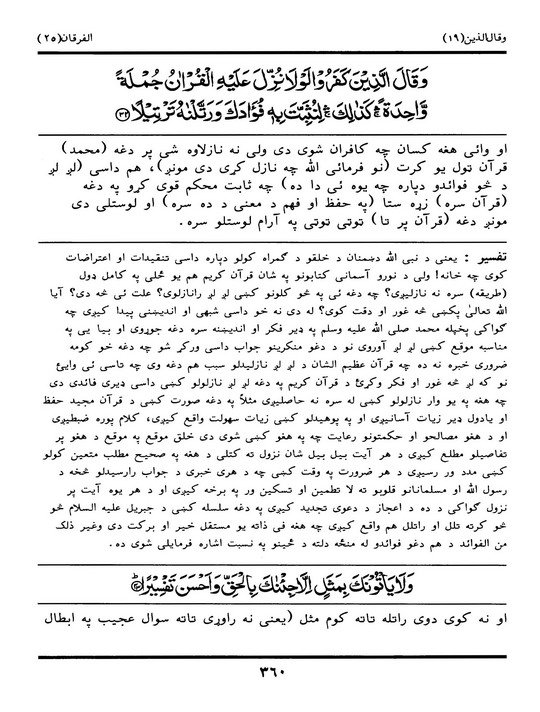 وقال الذین (۱۹)
الفرقان (۲۵)
وَقَالَ الَّذِيْنَ كَفَرُوْا لَوْلَا نُزِّلَ عَلَيْهِ الْقُرْاٰنُ جُمْلَةً
وَّاحِدَةً ۛ كَذٰلِكَ ۛ لِنُثَبِّتَ بِهٖ فُؤَادَكَ وَرَتَّلْنٰهُ تَرْتِيْلًا ﴿۳۲﴾
او وائی هغه کسان چه کافران شوی دی ولی نه نازلاوه شی پر دغه (محمد)
قرآن ټول یو کرت (نو فرمائی الله چه نازل کړی دی مونږ)، هم داسی (لږ لږ
د څو فوائدو دپاره چه یوه ئی دا ده) چه ثابت محکم قوی کړو په دغه
(قرآن سره) زړه ستا (په حفظ او فهم د معنی د ده سره) او لوستلی دی
مونږ دغه (قرآن پر تا) ټوټی ټوټی په آرام لوستلو سره.
تفسیر : یعنی د نبی الله دښمنان د خلقو د گمراه کولو دپاره داسی تنقیدات او اعتراضات
کوی چه خانه! ولی د نورو آسمانی کتابونو په شان قرآن کریم هم یو ځلی په کامل ډول
(طریقه) سره نه نازلیږی؟ چه دغه ئی په څو کلونو کښی لږ لږ رانازلوی؟ علت ئی څه دی؟ آیا
الله تعالیٰ پکښی څه غور او دقت کوی؟ له دی نه خو داسی شبهی او اندیښنی پیدا کیږی چه
گواکی پخپله محمد صلی الله علیه وسلم په ډیر فکر او اندیښنه سره دغه جوړوی او بیا یی په
مناسبه موقع کښی لږ لږ آوروی نو د دغو منکرینو جواب داسی ورکړ شو چه دغه خو کومه
ضروری خبره نه ده چه قرآن عظیم الشان د لږ لږ نازلیدلو سبب هم دغه وی چه تاسی ئی وایئ
نو که لږ څه غور او فکر وکړئ د قرآن کریم په دغه لږ لږ نازلولو کښی داسی ډیری فائدی دی
چه هغه په یو وار نازلولو کښی له سره نه حاصلیږی مثلاً په دغه صورت کښی د قرآن مجید حفظ
او یادول ډیر زیات آسانیږی او په پوهیدلو کښی زیات سهولت واقع کیږی، کلام پوره ضبطیږی
او د هغو مصالحو او حکمتونو رعایت چه په هغو کښی شوی دی خلق موقع په موقع د هغو پر
تفاصیلو مطلع کیږی د هر آیت بیل بیل شان نزول ته کتلی د هغه په صحیح مطلب متعین کولو
کښی مدد ور رسیږی د هر ضرورت په وقت کښی چه د هری خبری د جواب رارسیدلو څخه د
رسول الله او مسلمانانو قلوبو ته لا تطمین او تسکین ور په برخه کیږی او د هر یوه آیت پر
نزول گواکی د ده د اعجاز د دعوی تجدید کیږی په دغه سلسله کښی د جبریل علیه السلام څو
څو کرته تلل او راتلل هم واقع کیږی چه هغه فی ذاته یو مستقل خیر او برکت دی وغیر ذلک
من الفوائد د هم دغو فوائدو له منځه دلته د ځینو په نسبت اشاره فرمایلی شوی ده.
وَلَا يَاْتُوْنَكَ بِمَثَلٍ اِلَّا جِئْنٰكَ بِالْحَقِّ وَاَحْسَنَ تَفْسِيْرًا ﴿۳۳﴾
او نه کوی دوی راتله تاته کوم مثل (یعنی نه راوړی تاته سوال عجیب په ابطال
۳۶۰